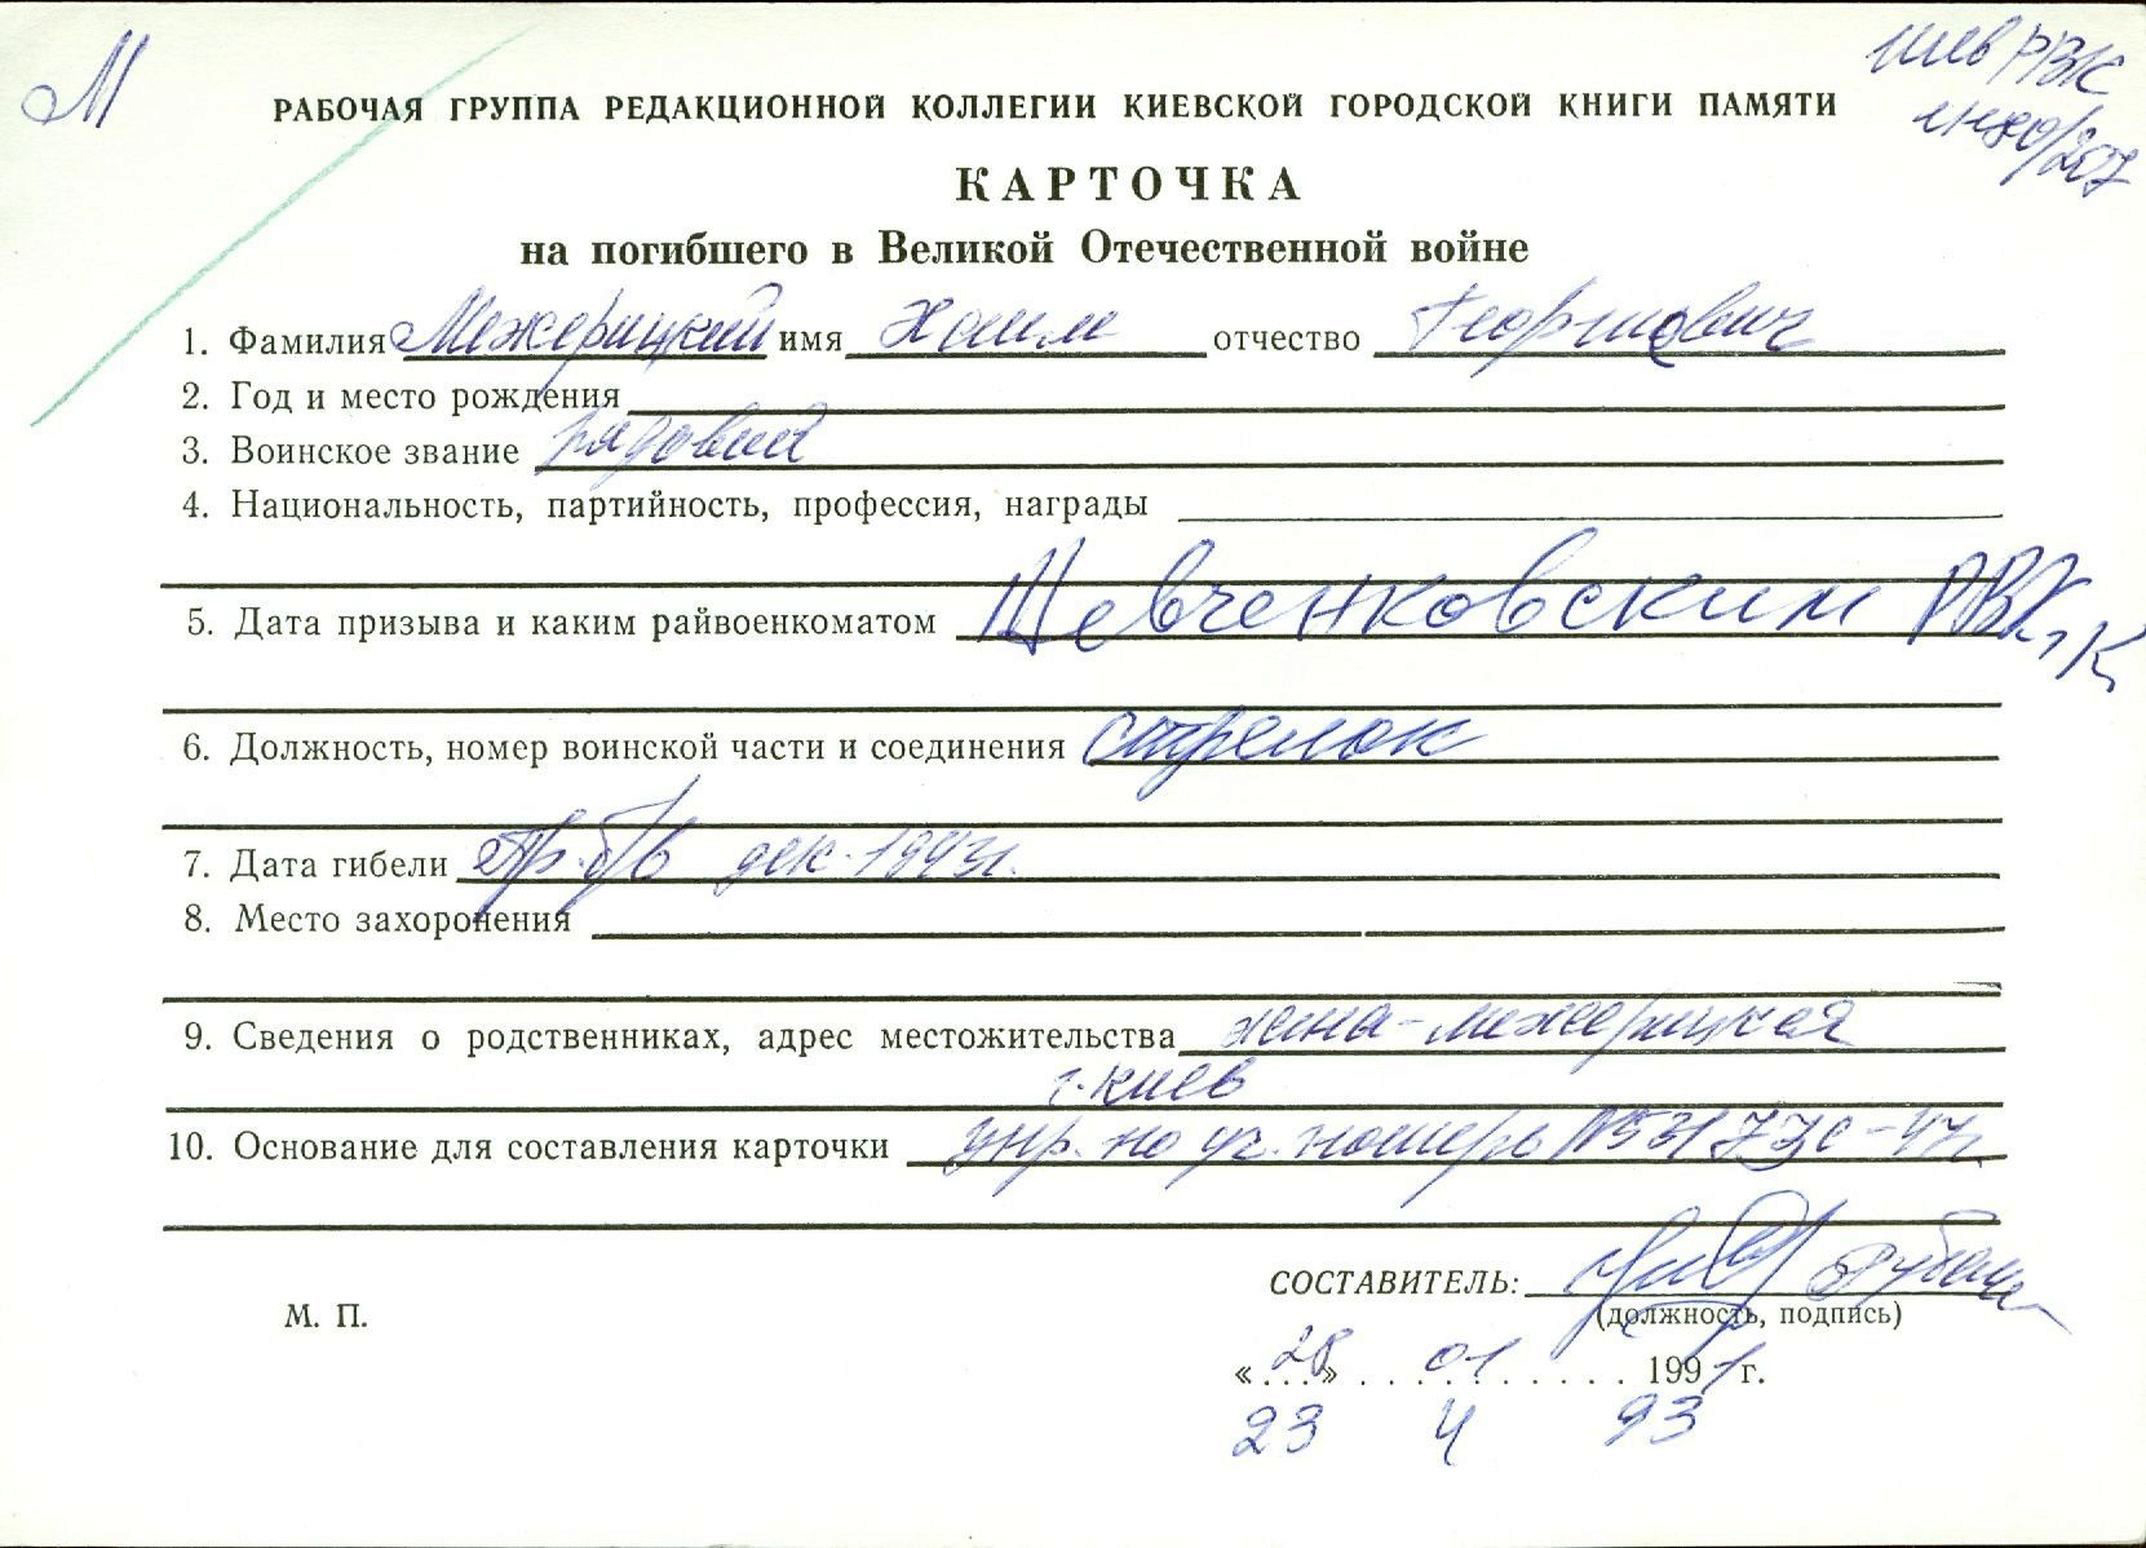 М
Шев РВК
РАБОЧАЯ ГРУППА РЕДАКЦИОННОЙ КОЛЛЕГИИ КИЕВСКОЙ ГОРОДСКОЙ КНИГИ ПАМЯТИ
КАРТОЧКА
на погибшего в Великой Отечественной войне
1. Фамилия Межерицкий имя Хаим отчество
2. Год и место рождения
3. Воинское звание рядовий
4. Национальность, партийность, профессия, награды
5. Дата призыва и каким райвоенкоматом Шевченковским РВК, К
6. Должность, номер воинской части и соединения стрелок
7. Дата гибели Пр. б/в дек. 1943г.
8. Место захоронения
9. Сведения о родственниках, адрес местожительства жена - межерицкая
г. киев
10. Основание для составления карточки упр. по уч. потерь №
СОСТАВИТЕЛЬ:
(должность, подпись)
М. П.
«28» 01 1991 г.
23 4 93